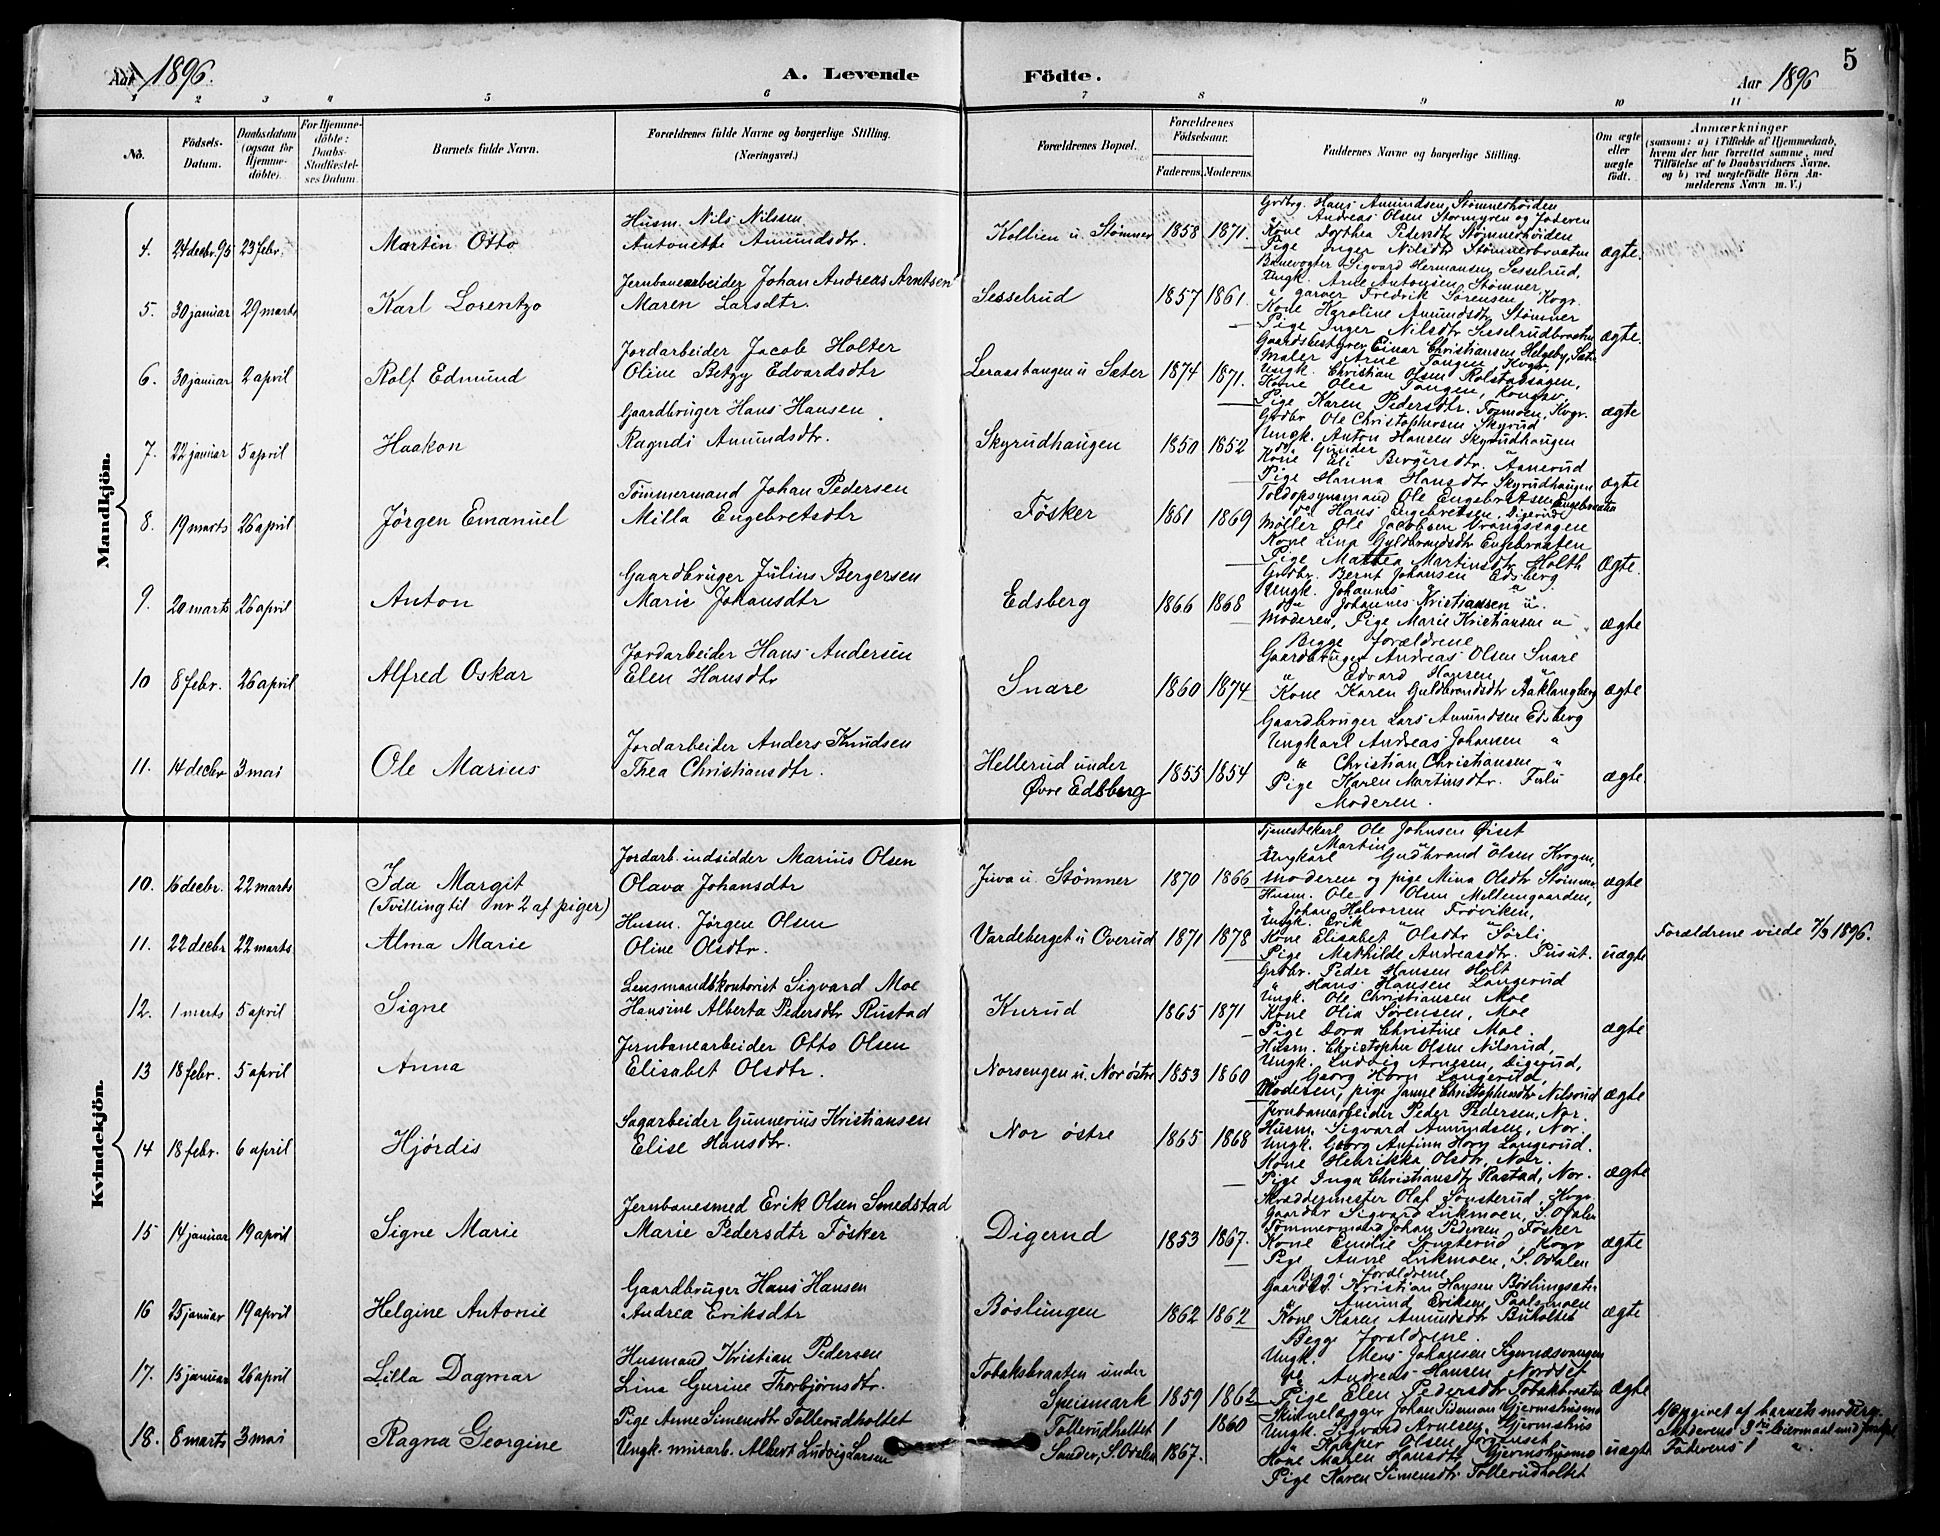 Aar 1896.
A. Levende
Födte.
Aar 1896
5
1 2 3 4 5 6 7 8 9 10 11
No.
Födsels-
Datum.
Daabsdatum
(ogsaa for
Hjemme-
döbte).
For Hjemme-
döbte:
Daabs-
Stadfæstel-
ses Datum.
Barnets fulde Navn.
Forældrenes fulde Navne og borgerlige Stilling.
(Næringsvei.)
Forældrenes Bopæl.
Forældrenes
Födselsaar.
Faderens. Moderens.
Faddernes Navne og borgerlige Stilling.
Om ægte
eller
uægte
födt.
Anmærkninger
(saasom: a) i Tilfælde af Hjemmedaab,
hvem der har forrettet samme, med
Tilföielse af to Daabsvidners Navne,
og b) ved uægtefödte Börn An-
melderens Navn m. V.)
Mandkjön.
4. 24 decbr. 95 23 febr. Martin Otto
Husm. Nils Nilssen
Antonette Amundsdtr.
Kollien u. Stømner 1858 1871.
Grdbrg. Hans Amundsen, Stømnerhøiden
" Andreas Olsen Stormyren og Faderen
Kone Dorthea Pedersdtr Stømnerhøiden
Pige Inger Nilsdtr Stømnerbraaten
ægte.
5. 30 januar 29 marts Karl Lorentzo
Jernbanearbeider Johan Andreas Arntsen
Maren Larsdtr.
Sesselrud 1857 1861.
Banevogter Sigvard Hermansen, Sesselrud,
Ungk. Arne Antonsen, Stømner,
" garver Fredrik Sørensen, Kvgr.
Kone Karoline Amundsdtr Stømner
Pige Inger Nilsdtr Sesselrudbraaten
ægte.
6. 30 januar 2 april Rolf Edmund
Jordarbeider Jacob Holter
Oline Betzy Edvardsdtr
Leraastangen u Sæter 1874 1871.
Gaardsbestyrer Einar Christiansen Helgeby, Sæter
Maler Arne Tangen, Kvgr.
Ungk. Christian Olsen Rolstadsagen,
Kone Olea Tangen, Kongsv.
Pige Karen Pedersdtr. Formoen, Kvgr.
ægte
7. 22 januar 5 april Haakon
Gaardbruger Hans Hansen
Ragndi Amundsdtr.
Skyrudhaugen 1850 1852
Grdbr Ole Christophersen Skyrud
Ungk. Anton Hansen Skyrudhaugen
do Gunder " "
Kone Eli Bergersdtr. Aanerud
Pige Hanna Hansdtr Skyrudhaugen
ægte
8. 19 marts 26 april Jörgen Emanuel
Tømmermand Johan Pedersen
Milla Engebretsdtr
Føsker 1861 1869
Toldopsynsmand Ole Engebretsen Engebraaten
do Hans Engebretsen, Digerud
Møller Ole Jacobsen Vrangssagen
Kone Lina Gulbrandsdtr Engebraaten
Pige Mathea Martinsdtr Holth
ægte.
9. 20 marts 26 april Anton
Gaardbruger Julius Bergersen
Marie Johansdtr
Edsberg 1866 1868
Grdbr. Bernt Johansen Edsberg
Ungk. Johannes "
do Johannes Kristiansen u.
Moderen, Pige Marie Kristiansen u "
ægte
10 8 febr. 26 april Alfred Oskar
Jordarbeider Hans Andersen
Elen Hansdtr
Snare 1860 1874
Begge forældrene
Gaardbruger Andreas Olsen Snare
" Edvard Hansen "
Kone Karen Guldbrandsdtr Aaklangberg
ægte
11. 14 decbr 3 mai Ole Marius
Jordarbeider Anders Knudsen
Thea Christiansdtr.
Hellerud under
Øvre Edsberg
1855 1854
Gaardbruger Lars Amundsen Edsberg
Ungkarl Andreas Johansen "
" Christian Christiansen "
Pige Karen Martinsdtr. Fulu
Moderen.
ægte.
Kvindekjön.
10. 16 decbr. 22 marts Ida Margit
(Tvilling til nr 2 af piger)
Jordarb. indsidder Marius Olsen
Olava Johansdtr
Juva u. Stømner 1870 1866
Tjenestekarl Ole Johnsen Øiset
" Martin " "
Ungkarl Gudbrand Olsen Kvgr,
Moderen og pige Mina Olsdtr Stømner
ægte
11. 22 decbr 22 marts Alma Marie
Husm. Jörgen Olsen
Oline Olsdtr.
Vardeberget u Overud 1871 1878
Husm. Ole Olsen Mellemgaarden,
" Johan Halvorsen Frøviken,
Ungk. Erik " "
Kone Elisabet Olsdtr Sørli
Pige Mathilde Andreasdtr. Pusut.
uægte
Forældrene viede 7/3 1896.
12. 1 marts 5 april Signe
Lensmandskontorist Sigvard Moe
Hansine Alberta Pedersdtr Rustad
Kurud 1865 1871
Grdbr. Peder Hansen Holt
" Hans Hansen Langerud
Ungk. Ole Christiansen Moe
Kone Olia Sørensen, Moe
Pige Dora Christine Moe.
ægte
13 18 febr. 5 april Anna
Jernbanearbeider Otto Olsen
Elisabet Olsdtr.
Norsengen u. Nor østre 1853 1860
Husm. Christopher Olsen Nilsrud,
Ungk. Ludvig Arnesen, Digerud,
" Georg Horn Langerud,
Moderen, pige Janne Christophersdtr Nilsrud
ægte
14 18 febr. 6 april Hjördis
Sagarbeider Gunnerius Kristiansen
Elise Hansdtr.
Nor østre 1865 1868
Jernbanearbeider Peder Pedersen, Nor.
Husm. Sigvard Amundsen, Nor.
Ungk. Georg Anton Horn Langerud.
Kone Henrikka Olsdtr, Nor.
Pige Inga Christiansdtr Rastad, Nor.
ægte
15 14 januar 19 april Signe Marie
Jernbanesmed Erik Olsen Smedstad
Marie Pedersdtr Føsker
Digerud 1853 1867.
Skræddermester Olaf Sønsterud, Kvgr.
Gaardbr Sigvard Lukmoen, S. Odalen
Tømmermand Johan Pedersen, Føsker
Kone Emilie Sønsterud, Kvgr
Pige Anne Lukmoen, S. Odalen
ægte
16 25 januar 19 april Helgine Antonie
Gaardbruger Hans Hansen
Andrea Eriksdtr
Bøslungen 1862 1862
Begge forældrene
Gaardbr. Kristian Hansen Bøslungsæter
" Amund Eriksen Paalsmoen
Kone Karen Amundsdtr Buholtet
ægte
17. 15 januar 26 april Lilla Dagmar
Husmand Kristian Pedersen
Lina Gurine Thorbjørnsdtr.
Tobaksbraaten under
Speismark
1859 1862
Begge Forældrene.
Ungk. Mens Johansen Sigernæsvangen
do Andreas Hansen, Nordset
Pige Elen Pedersdtr Tobaksbraaten
ægte
18. 8 marts 3 mai Ragna Georgine
Pige Anne Simensdtr Tollerudholtet
Ungk. murarb. Albert Ludvig Larsen
Tollerudholtet 1 1860
Sander, S. Odalen 1867.
Skindelægger Johan Sideman Gjermshusmo
Ungk. Sigvard Arnesen, Gjermshus
" Kasper Olsen Jørsæt
Kone Maren Hansdtr Gjermshusmo
Pige Karen Simensdtr Tollerudholtet
uægte
b/ Opgivet af barnets moder.
Moderens 3die leiermaal
Faderens 1 "